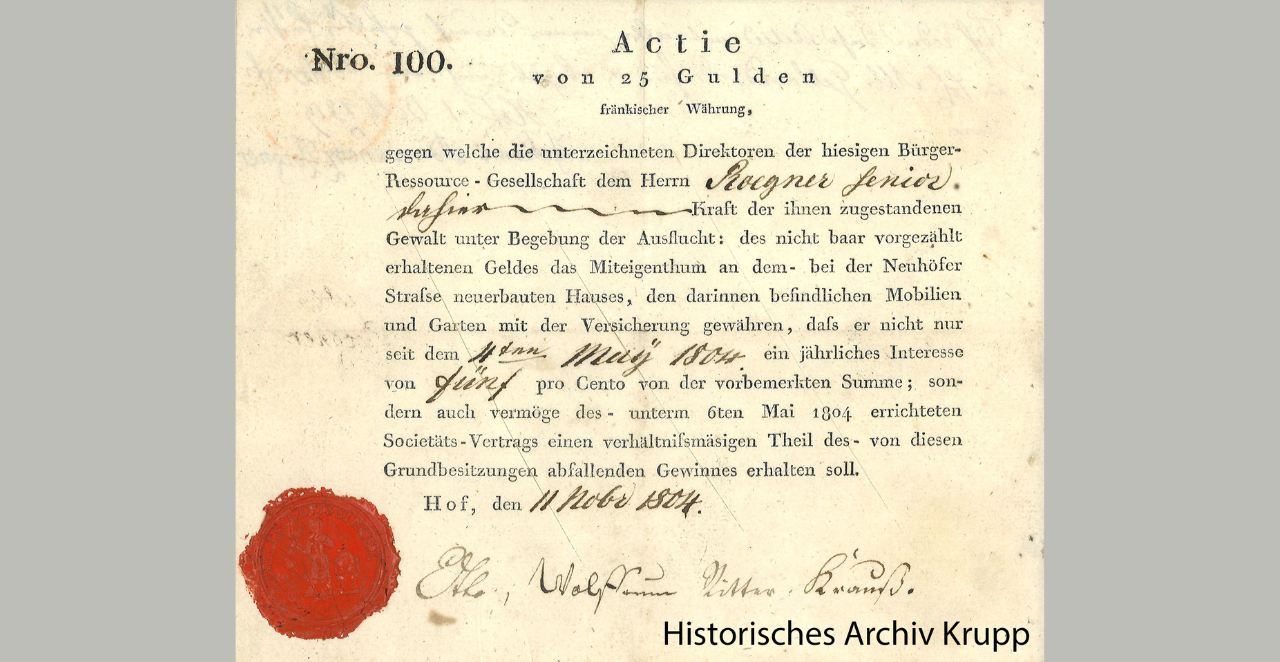 Nro. 100.
Actie
von 25 Gulden
fränkischer Währung,
gegen welche die unterzeichneten Direktoren der hiesigen Bürger-
Ressource - Gesellschaft dem Herrn Roegner senior.
dahier Kraft der ihnen zugestandenen
Gewalt unter Begebung der Ausflucht: des nicht baar vorgezählt
erhaltenen Geldes das Miteigenthum an dem- bei der Neuhöfer
Straſse neuerbauten Hauses, den darinnen befindlichen Mobilien
und Garten mit der Versicherung gewähren, daſs er nicht nur
seit dem 4ten May 1804. ein jährliches Interesse
von fünf pro Cento von der vorbemerkten Summe; son-
dern auch vermöge des- unterm 6ten Mai 1804 errichteten
Societäts-Vertrags einen verhältniſsmäsigen Theil des- von diesen
Grundbesitzungen abfallenden Gewinnes erhalten soll.
Hof, den 11 Nobr 1804.
Wolfrum Ritter. Krauß.
Historisches Archiv Krupp